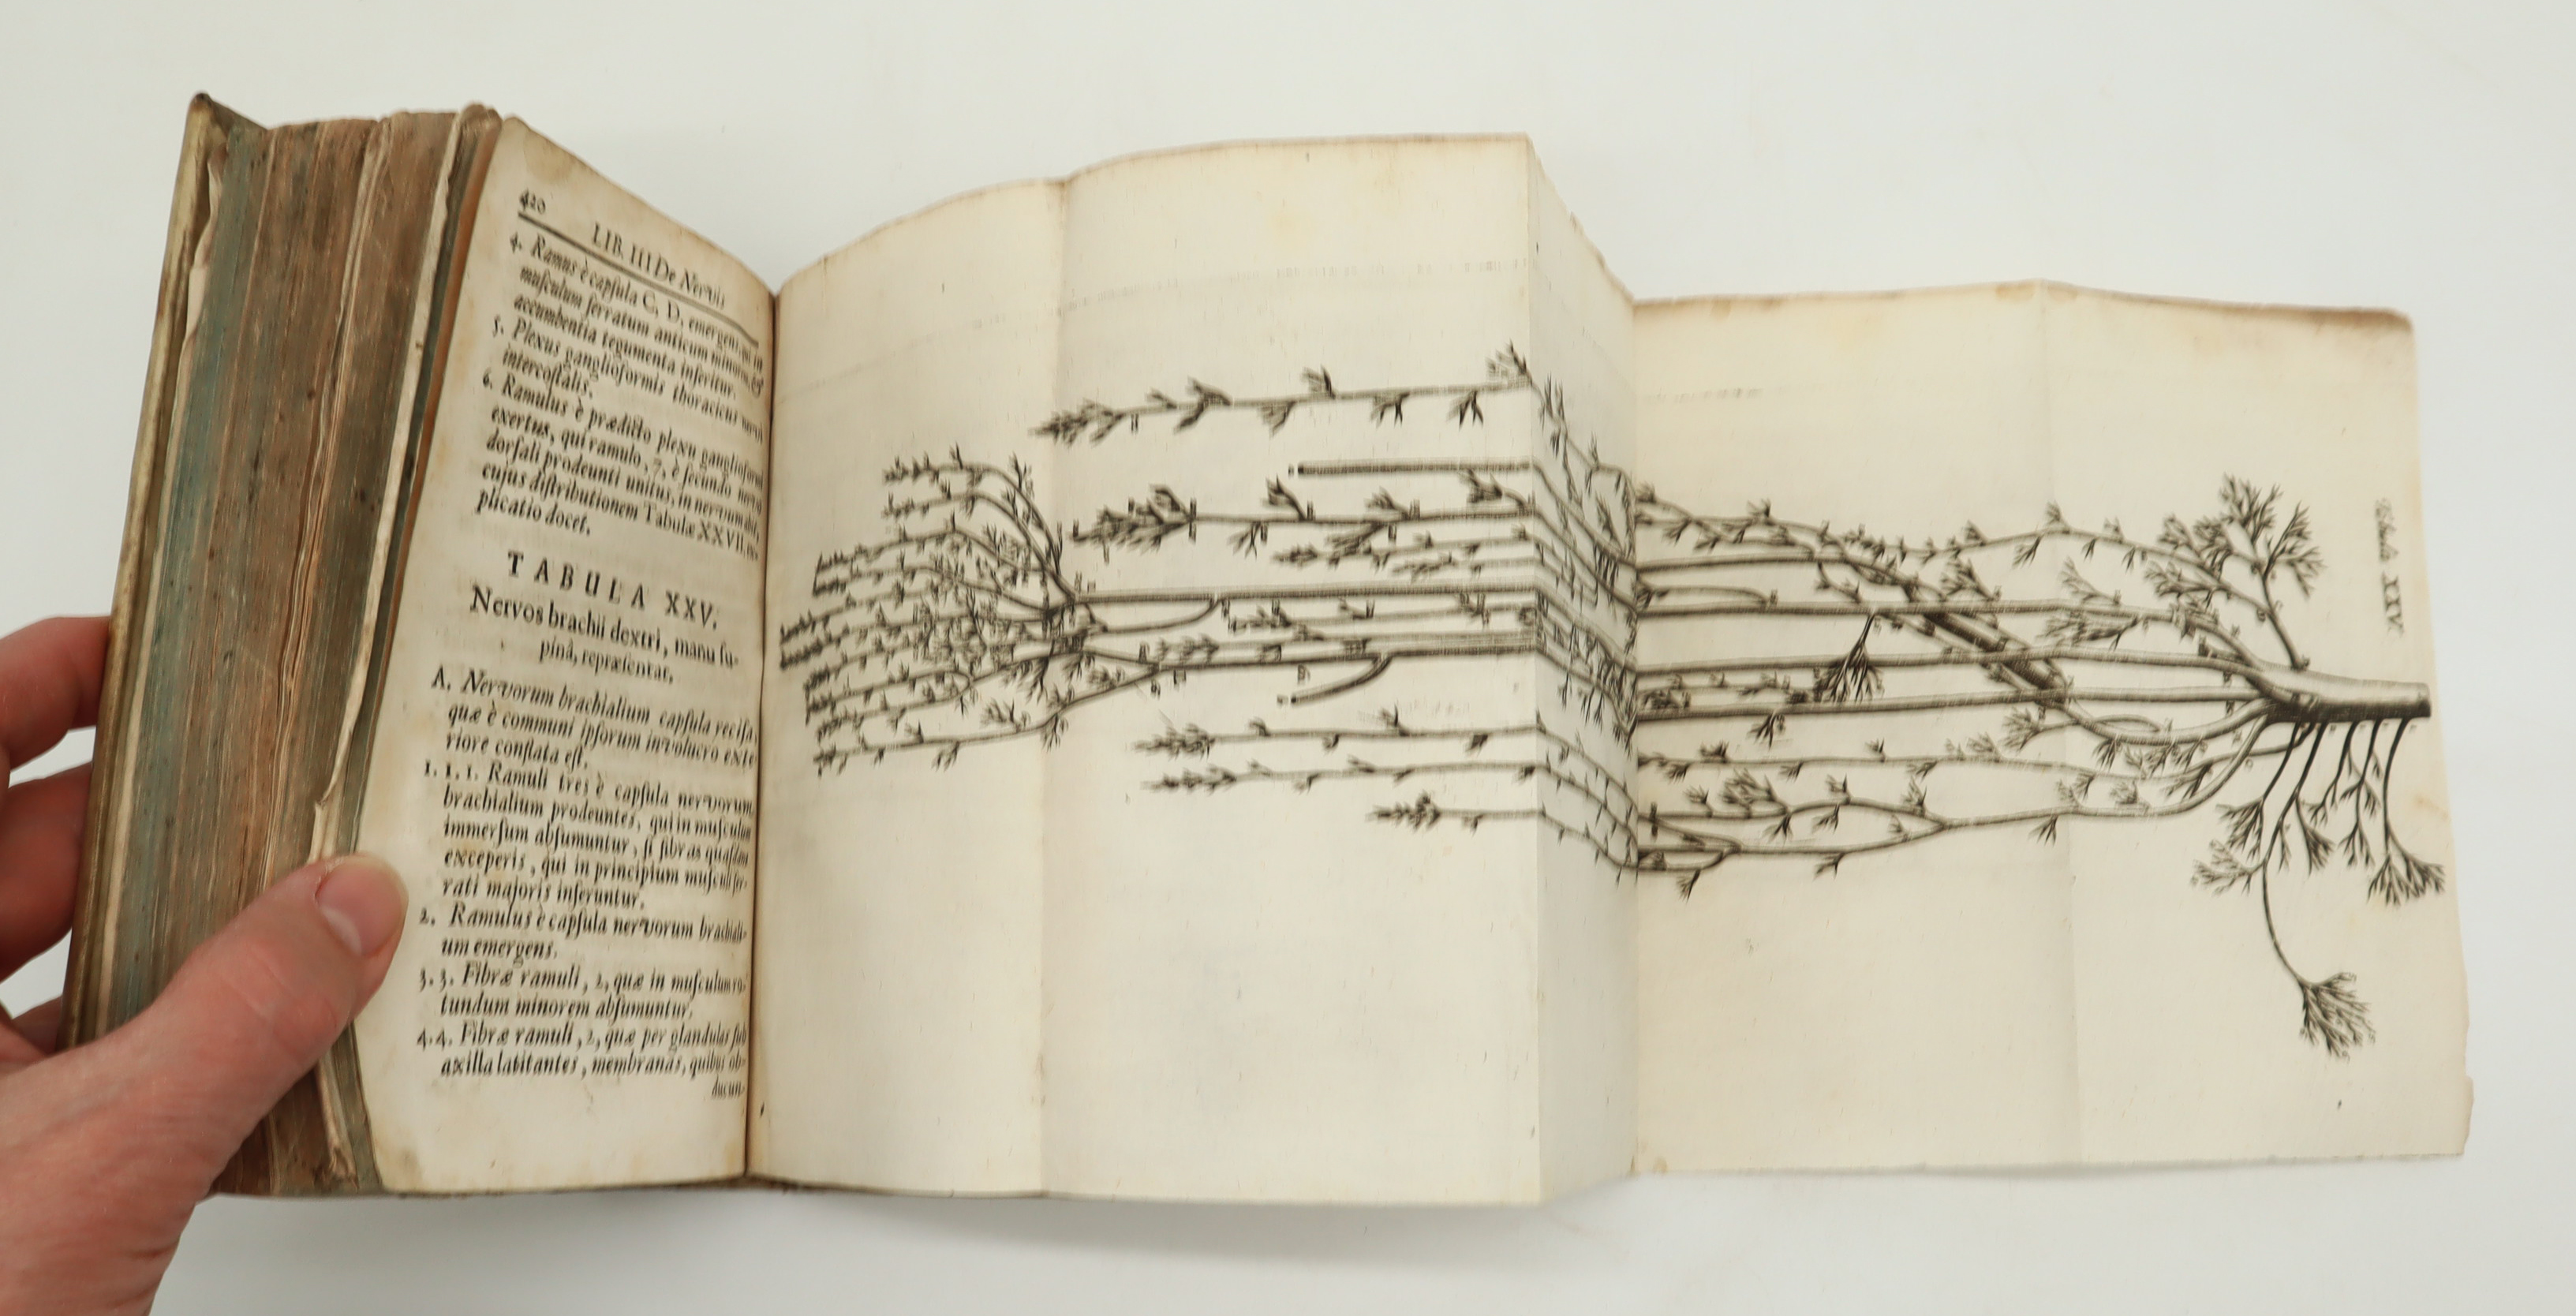 420
LIB. IIII De Nervis
4. Ramus è capſula C, D, emergens, qui in
muſculum ſerratum anticum minorem, &
accumbentia tegumenta inſeritur.
5. Plexus ganglioformis thoracicus nervi
intercoſtalis.
6. Ramulus è prædicto plexu ganglioformi
exertus, qui ramulo, 7, è ſecundo nervo
dorſali prodeunti unitus, in nervum abit,
cujus diſtributionem Tabulæ XXVII, ex-
plicatio docet.
TABULA XXV.
Nervos brachii dextri, manu ſu-
pinâ, repræſentat.
A. Nervorum brachialium capſula reciſa,
quæ è communi ipſorum involucro exte
riore conflata eſt.
1. 1. 1. Ramuli tres è capſula nervorum
brachialium prodeuntes, qui in muſculum
immerſum abſumuntur, ſi fibras quaſdam
exceperis, qui in principium muſculi ſer-
rati majoris inſeruntur.
2. Ramulus è capſula nervorum brachiali-
um emergens.
3. 3. Fibræ ramuli, 2, quæ in muſculum ro-
tundum minorem abſumuntur.
4. 4. Fibræ ramuli, 2, quæ per glandulas ſub
axilla latitantes, membranas, quibus ob-
ducun-
Tabula XXV.